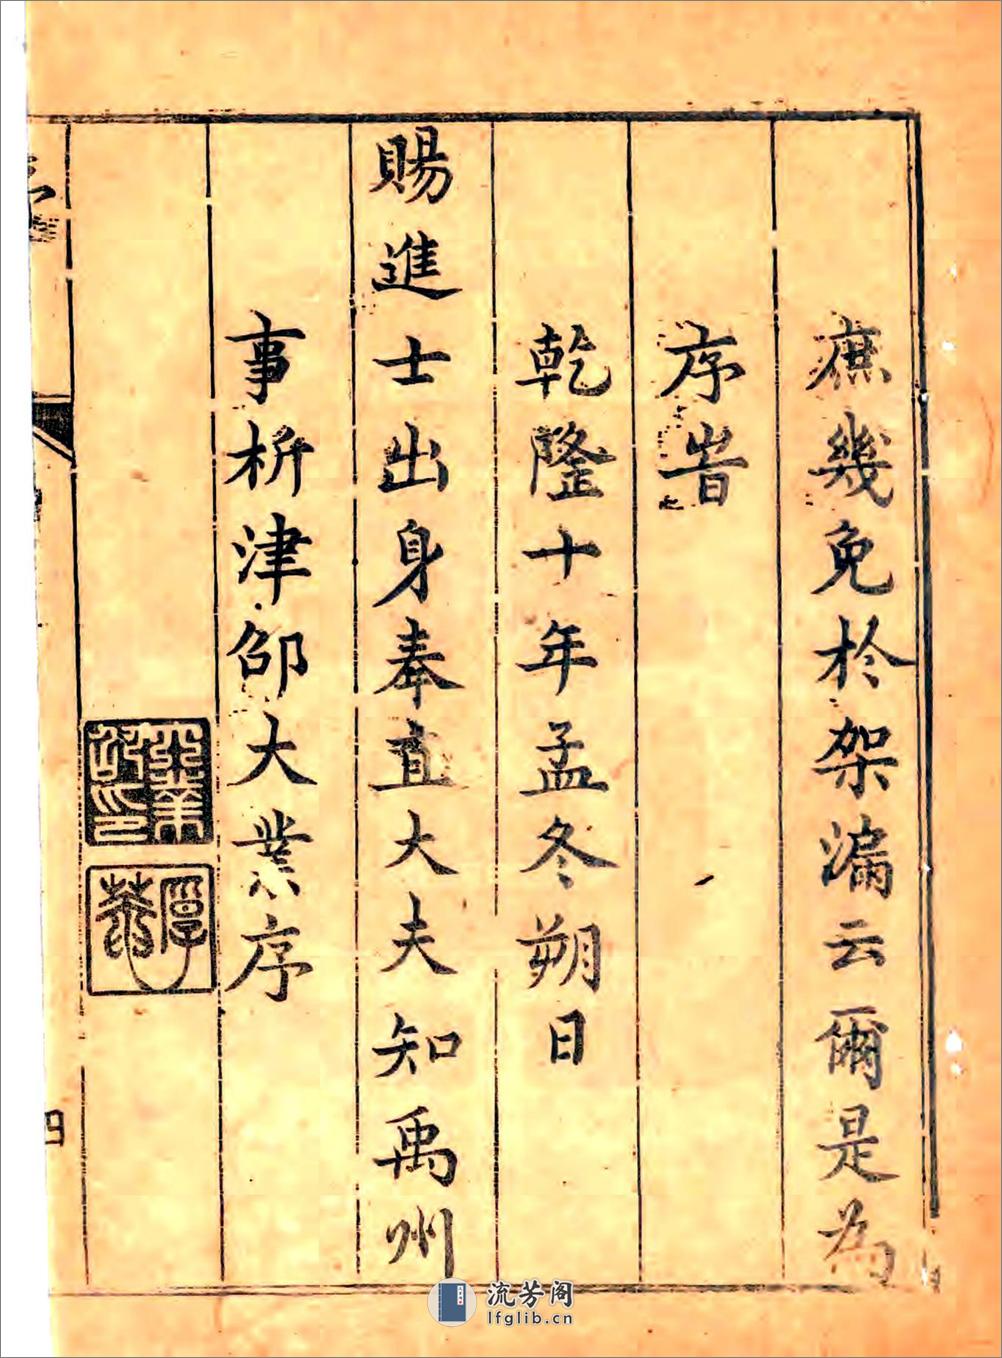 庶幾免於架漏云爾是為
序旹
乾隆十年孟冬朔日
賜進士出身奉直大夫知禹州
事析津邵大業序
序
四
流芳阁
lfglib.cn